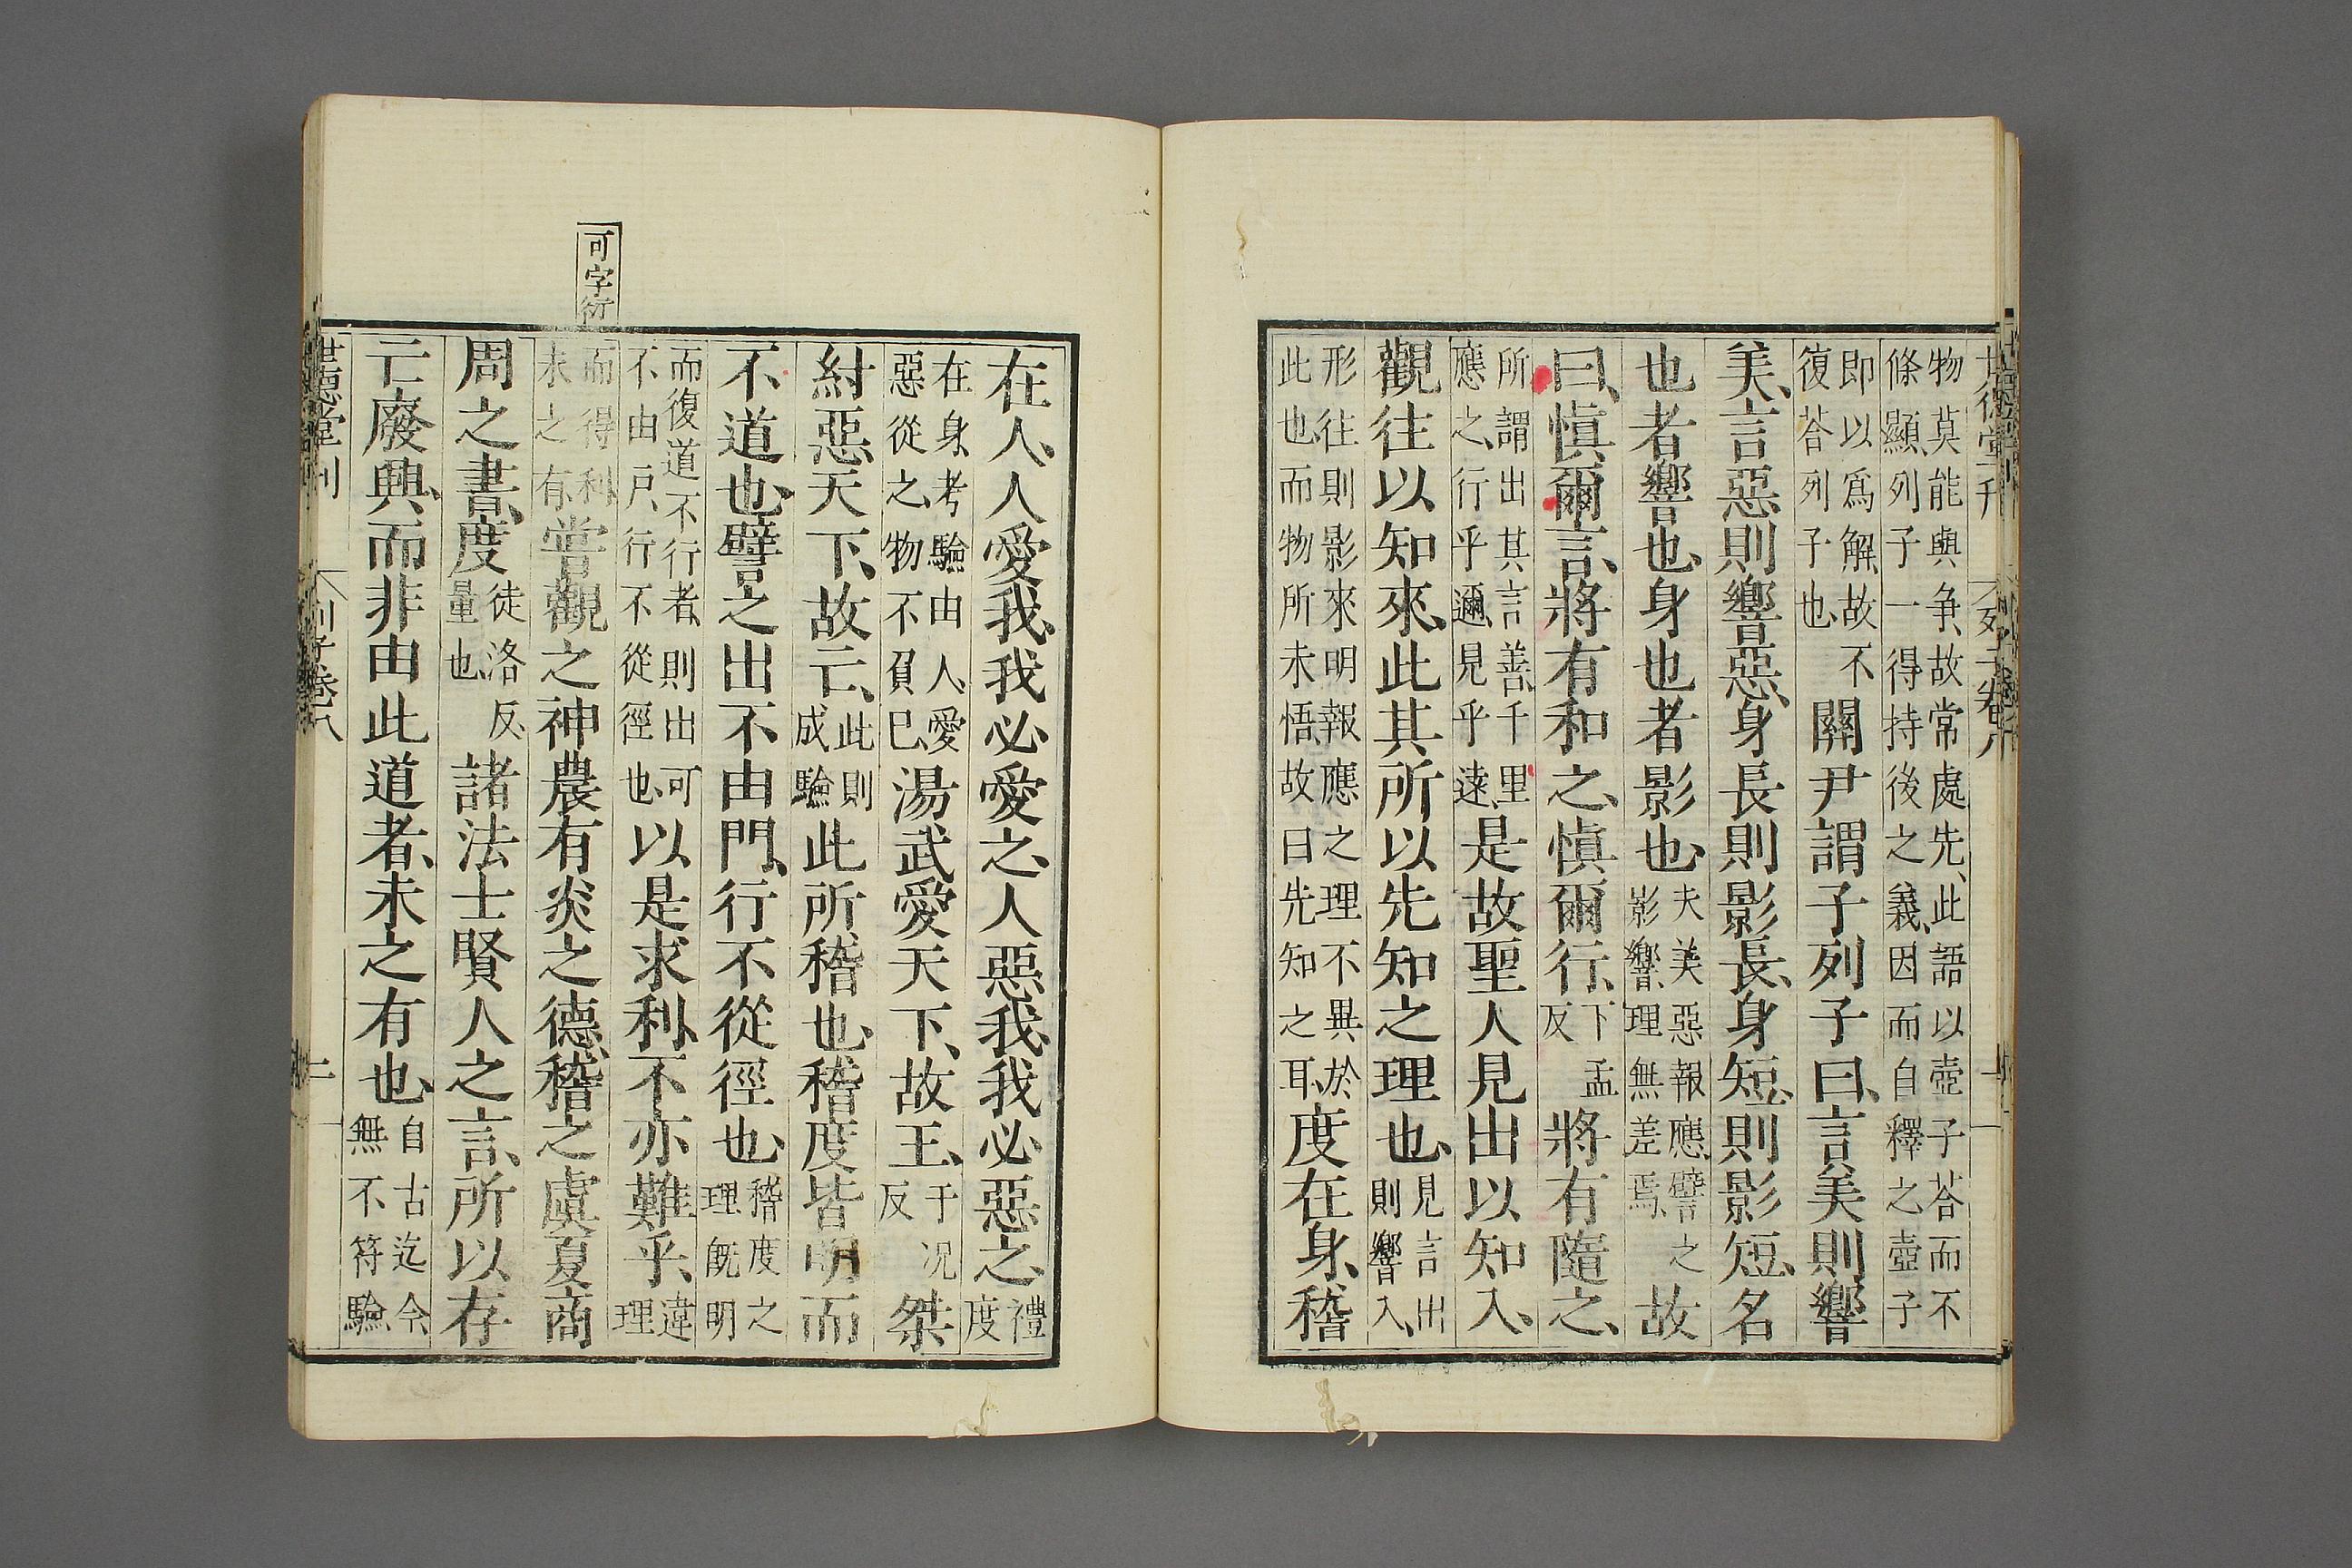 物莫能與争、故常處先、此語以壺子荅而不
條顯、列子一得持後之義、因而自釋之壺子
即以爲解、故不
復荅列子也、
關尹謂子列子曰、言美則響
美、言惡則響惡、身長則影長、身短、則影短、名
也者響也、身也者影也、
夫美惡報應、譬之
影響、理無差焉、
故
曰、愼爾言、將有和之、愼爾行、
下孟
反
將有隨之、
所謂出其言善、千里
應之、行乎邇、見乎遠、
是故聖人見出以知入、
觀往以知來、此其所以先知之理也、
見言出
則響入、
形往則影來、明報應之理不異於
此也、而物所未悟、故曰先知之耳、
度在身、稽
在人、人愛我、我必愛之、人惡我、我必惡之、
禮
度
在身、考驗由人、愛
惡從之、物不負已、
湯武愛天下、故王、
于况
反
桀
紂惡天下、故亡、
此則
成驗
此所稽也、稽度皆明而
不道也、譬之出不由門、行不從徑也、
稽度之
理既明
而復道不行者、則出可
不由戶、行不從徑也、
以是求利、不亦難乎、
違
理
而得利、
未之有、
嘗觀之神農有炎之德、稽之虞夏商
周之書、度
徒洛反、
量也、
諸法士賢人之言、所以存
亡廢興、而非由此道者、未之有也、
自古迄今、
無不符驗
可字衍
世德堂刊
列子卷八
二